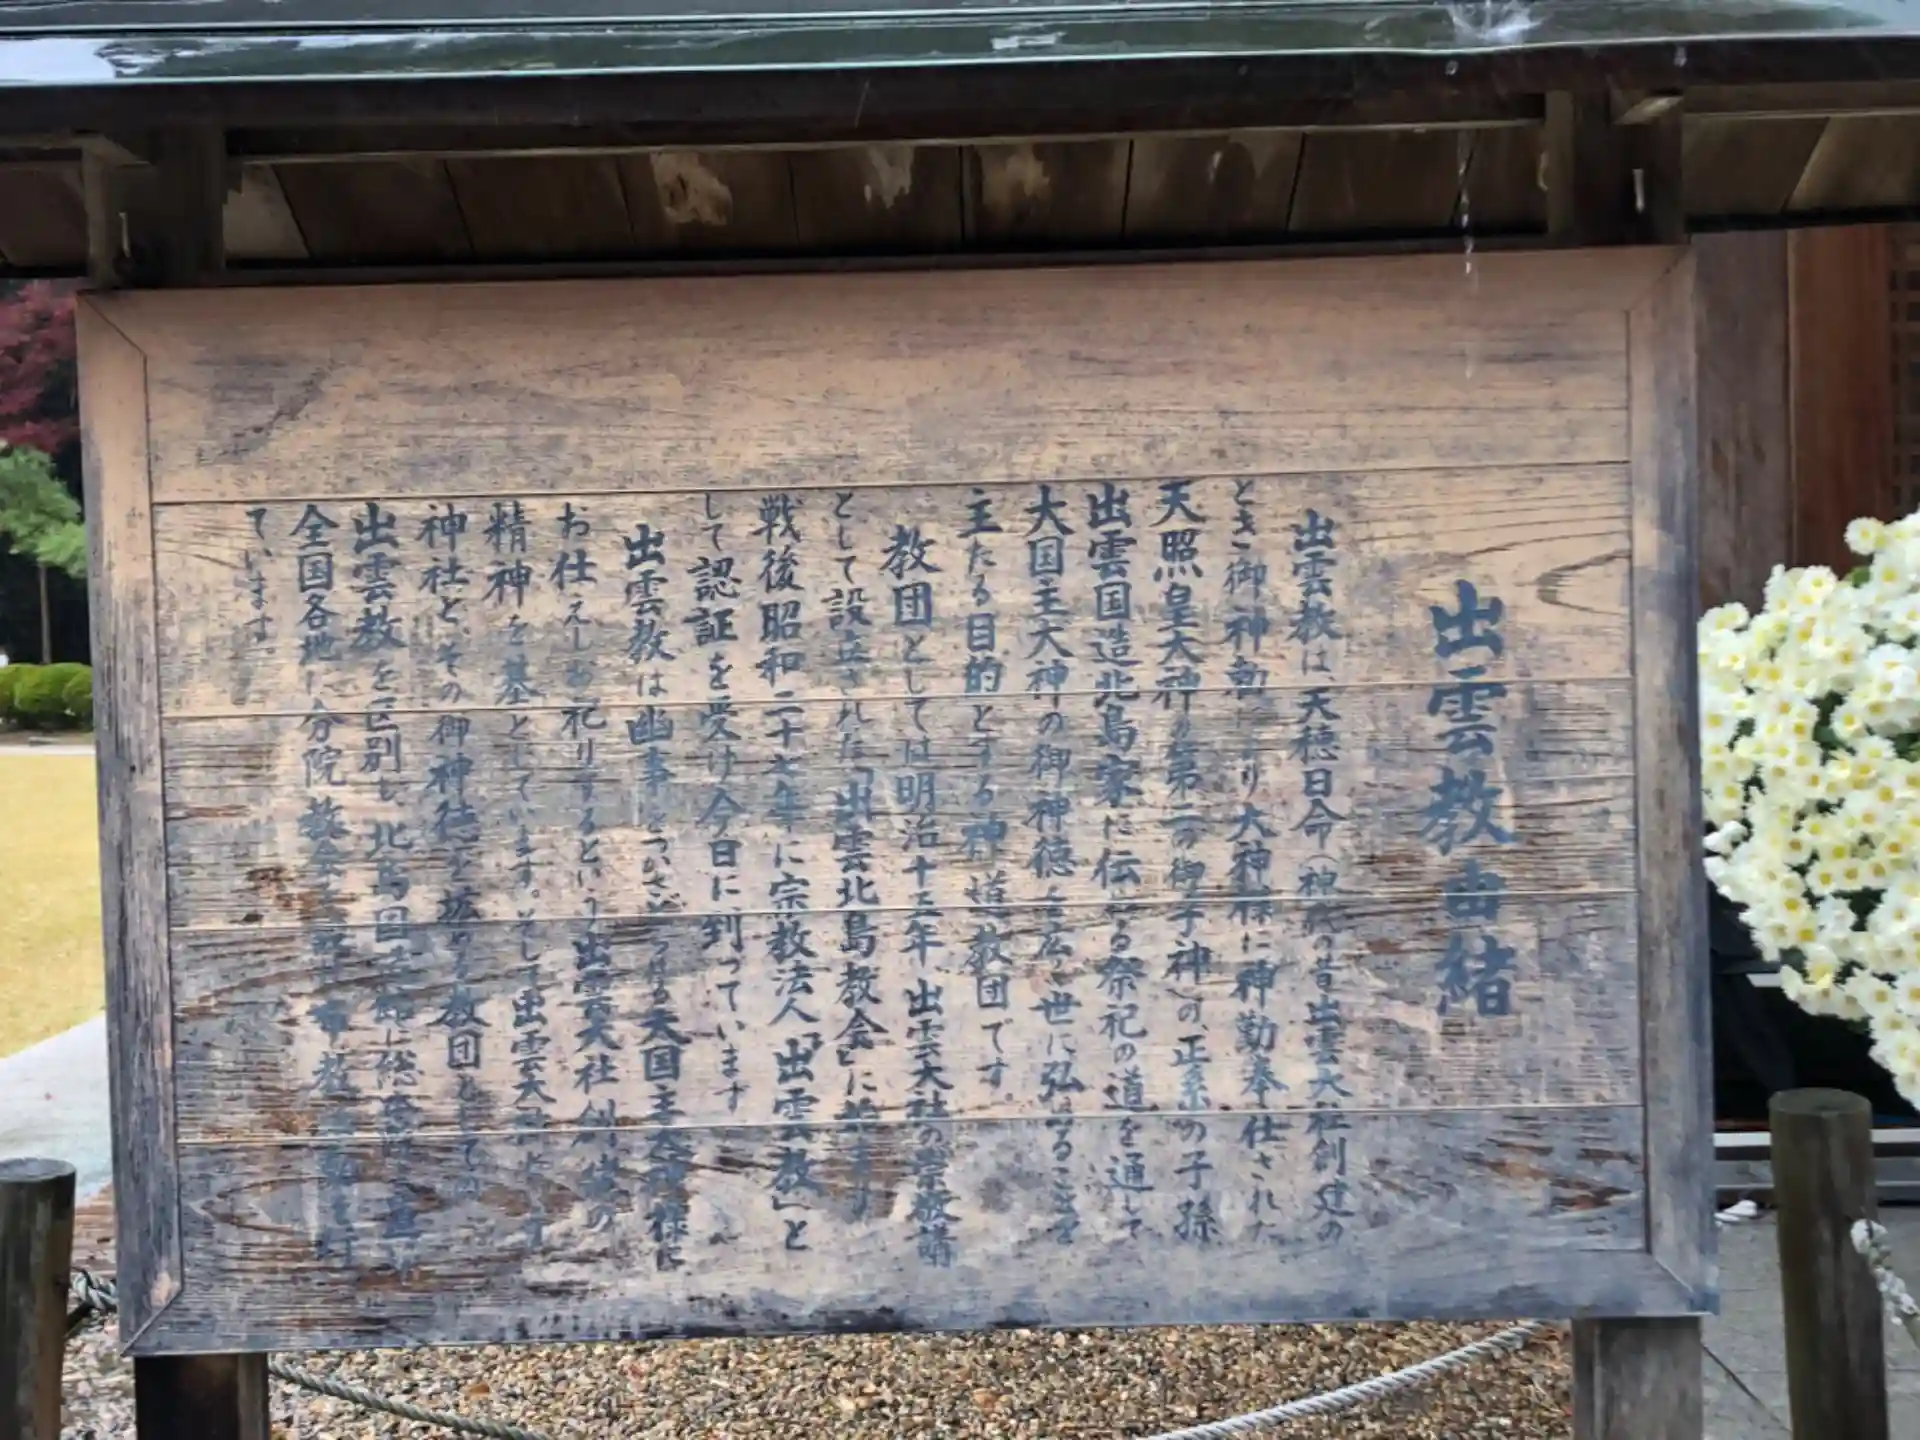 出雲教由緒
出雲教は、天穂日命(神代の昔出雲大社創建の
とき御神勅により大神様に神勤奉仕された
天照皇大神の第二の御子神)の、正系の子孫
出雲国造北島家に伝わる祭祀の道を通して
大国主大神の御神徳を広く世に弘めることを
主たる目的とする神道教団です。
教団としては明治十五年 出雲大社の崇敬講
として設立された「出雲北島教会」に始まります
戦後昭和二十七年に宗教法人「出雲教」と
して認証を受け今日に到っています
出雲教は幽事をつかさどられる大国主大神様に
お仕えしお祀りするという出雲大社創建の
精神を基としています。そして出雲大社という
神社と、その御神徳を拡める教団としての
出雲教を区別し 北島国造
全国各地に分院 教会
ています。